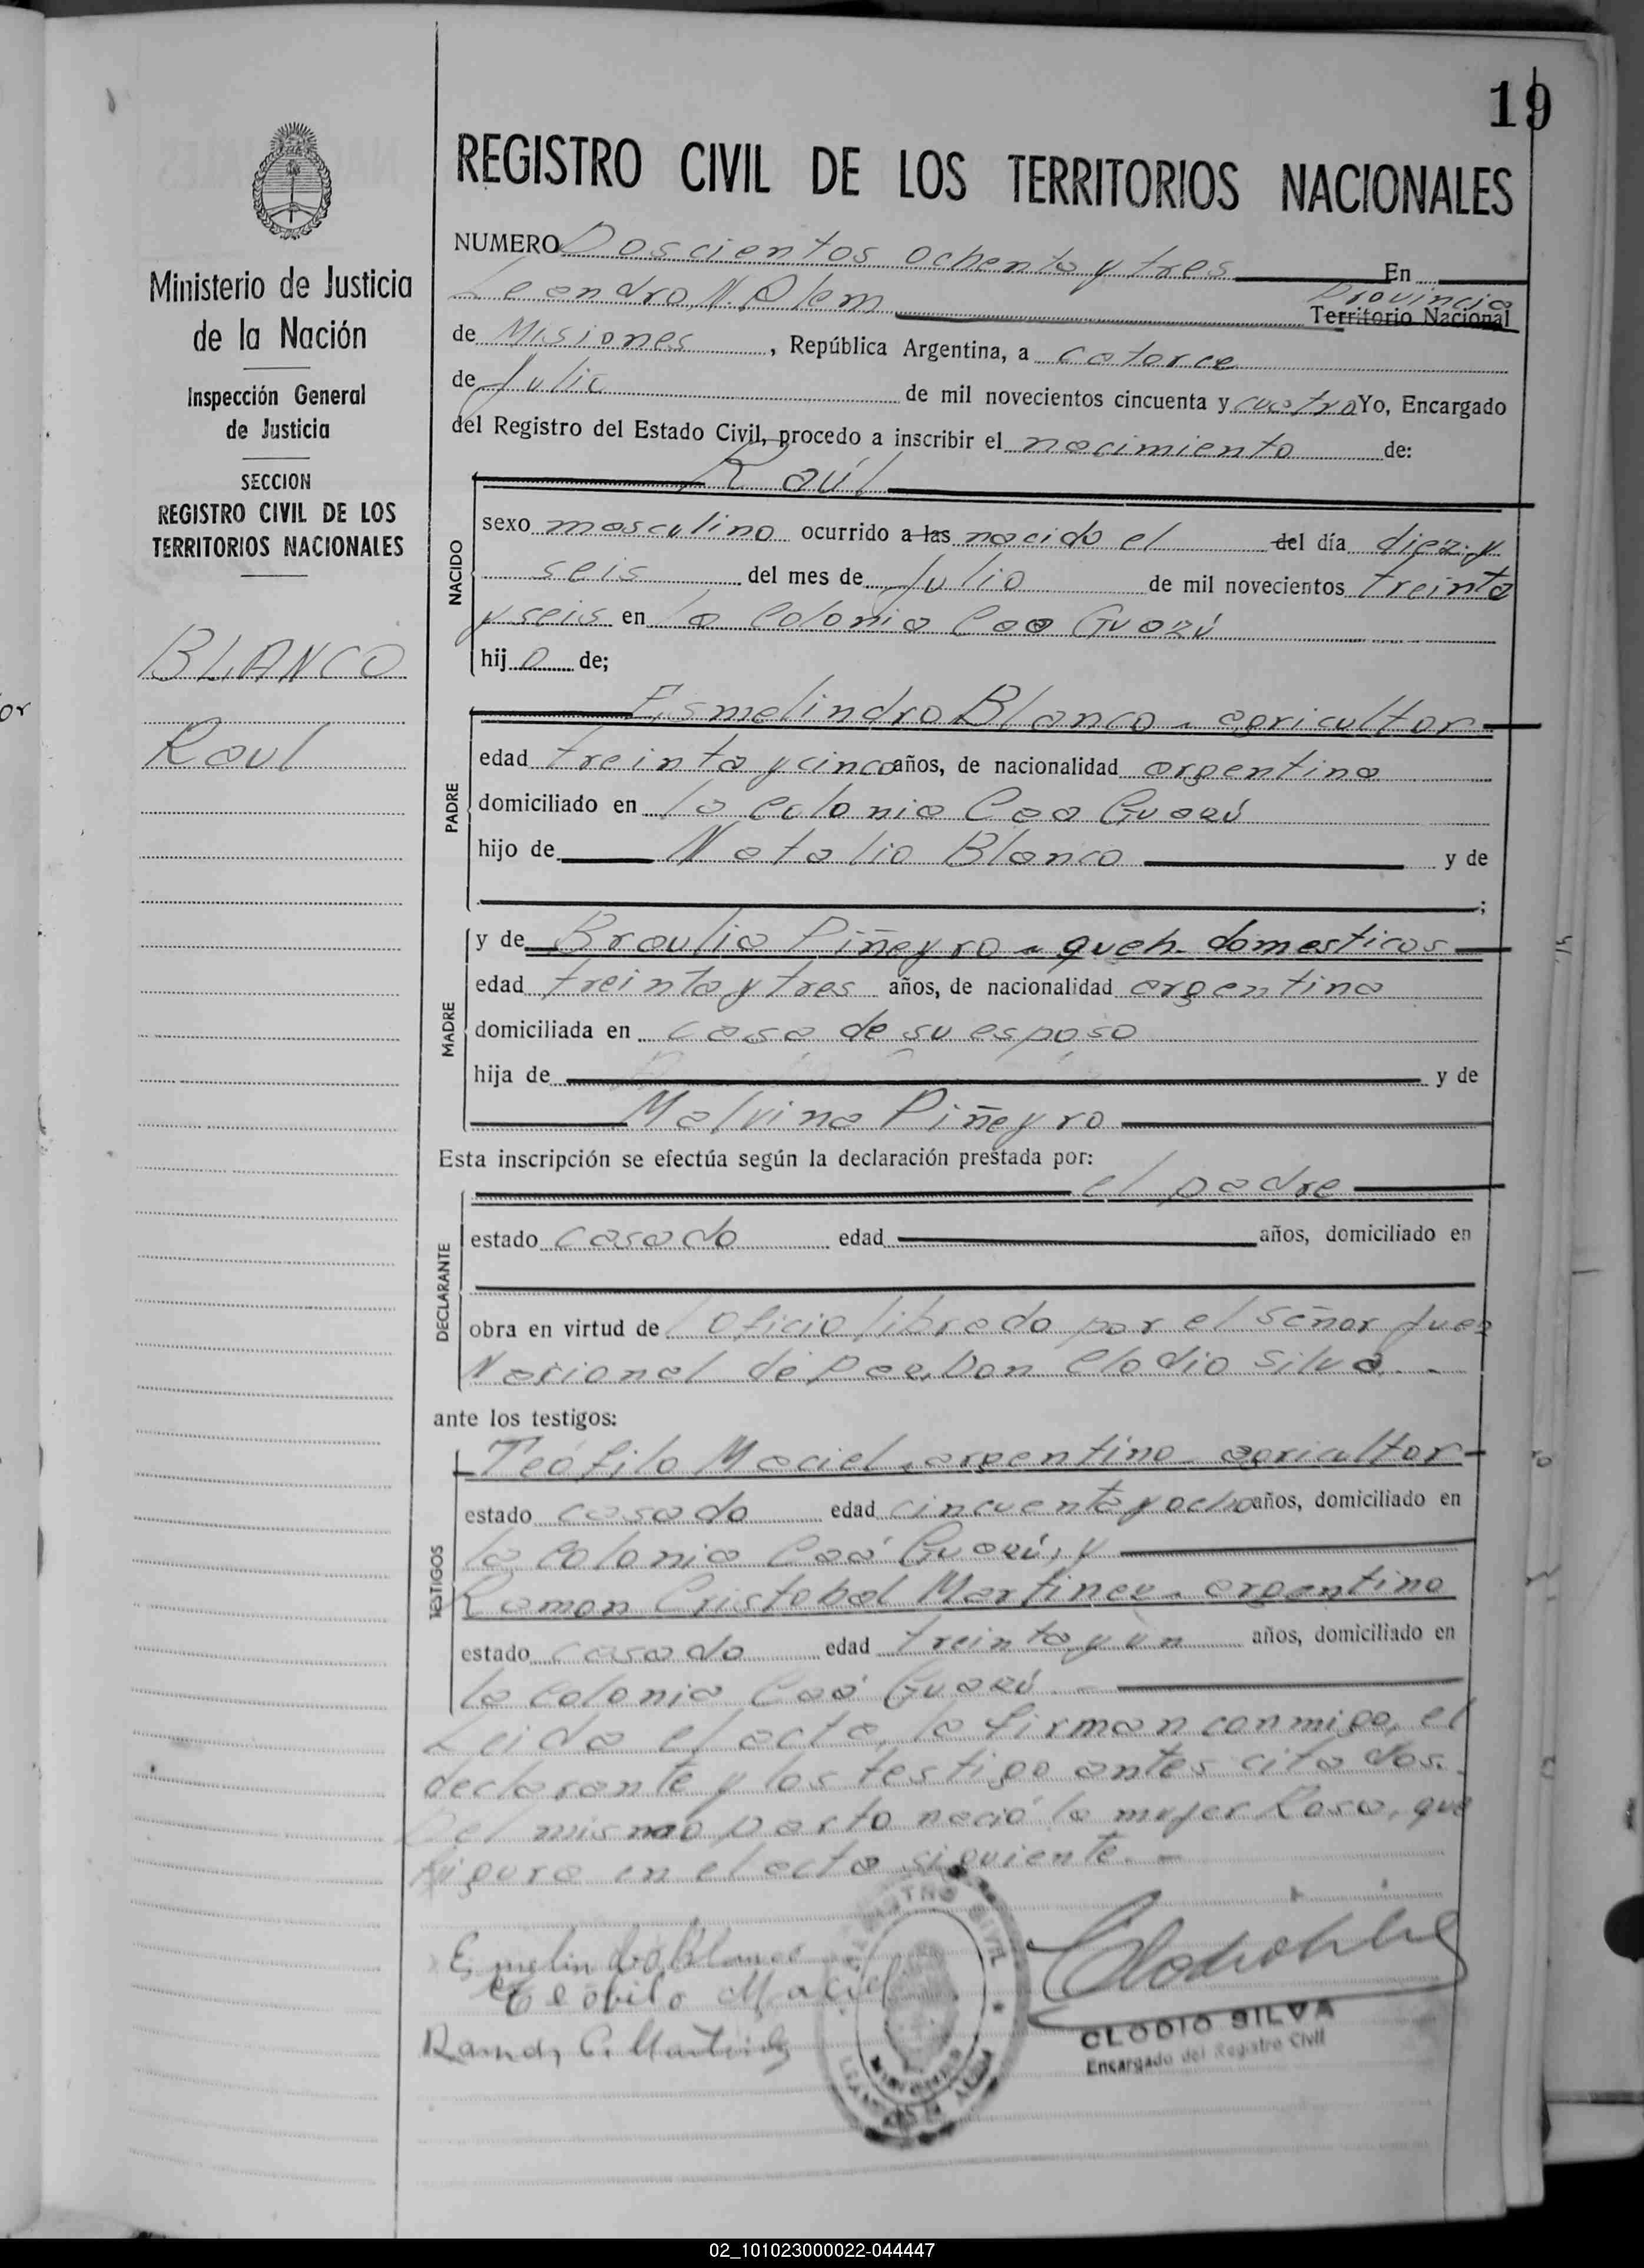 19
REGISTRO CIVIL DE LOS TERRITORIOS NACIONALES
Ministerio de Justicia
de la Nación
Inspección General
de Justicia
SECCION
REGISTRO CIVIL DE LOS
TERRITORIOS NACIONALES
BLANCO
Raul
or
NUMERO Doscientos ochenta y tres En
Leandro N. Alem Provincia Territorio Nacional
de Misiones, República Argentina, a catorce
de Julio de mil novecientos cincuenta y cuatro Yo, Encargado
del Registro del Estado Civil, procedo a inscribir el nacimiento de:
Raúl
NACIDO
sexo masculino ocurrido a las nacido el del día diez y
seis del mes de Julio de mil novecientos treinta
y seis en la Colonia Caa Guazú
hijo de;
Esmelindro Blanco - agricultor
PADRE
edad treinta y cinco años, de nacionalidad argentina
domiciliado en la Colonia Caa Guazú
hijo de Natalio Blanco y de
;
y de Braulia Piñeyro - queh. domesticos
MADRE
edad treinta y tres años, de nacionalidad argentina
domiciliada en casa de su esposo
hija de y de
Malvina Piñeyro
Esta inscripción se efectúa según la declaración prestada por:
el padre
DECLARANTE
estado casado edad años, domiciliado en
obra en virtud de oficio librado por el Señor Juez
Nacional de Paz, Don Clodio Silva. -
ante los testigos:
Teófilo Maciel, argentino - agricultor
TESTIGOS
estado casado edad cincuenta y ocho años, domiciliado en
la Colonia Caá Guazú, y
Ramon Cristobal Martinez - argentino
estado casado edad treinta y un años, domiciliado en
la Colonia Caá Guazú. -
Leida el acta, la firman conmigo, el
declarante y los testigo antes citados.
Del mismo parto nació la mujer Rosa, que
figura en el acta siguiente. -
Esmelindro Blanco
Teófilo Maciel
Ramon C. Martinez
REGISTRO CIVIL
MISIONES
LEANDRO N. ALEM
CLODIO SILVA
Encargado del Registro Civil
02_101023000022-044447